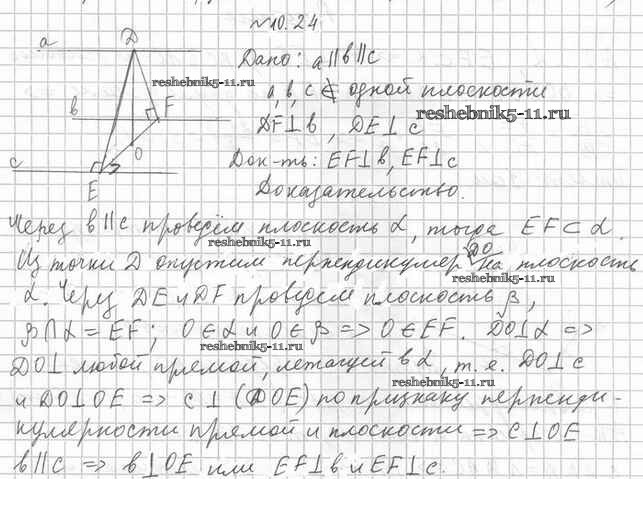 №10.24
a D
Дано: a||b||c
reshebnik5-11.ru
a, b, c ∉ одной плоскости
reshebnik5-11.ru
b F
DF⊥b, DE⊥c
O
c E
Док-ть: EF⊥b, EF⊥c
Доказательство.
Через b||c проведём плоскость α, тогда EF⊂α.
reshebnik5-11.ru
Из точки D опустим перпендикуляр DO на плоскость
α. Через DE и DF проведём плоскость β,
β∩α=EF; O∈α и O∈β => O∈EF. DO⊥α =>
reshebnik5-11.ru
DO⊥ любой прямой, лежащей в α, т.е. DO⊥c
reshebnik5-11.ru
и DO⊥OE => c⊥(DOE) по признаку перпенди-
кулярности прямой и плоскости => c⊥OE
b||c => b⊥OE или EF⊥b и EF⊥c.
reshebnik5-11.ru